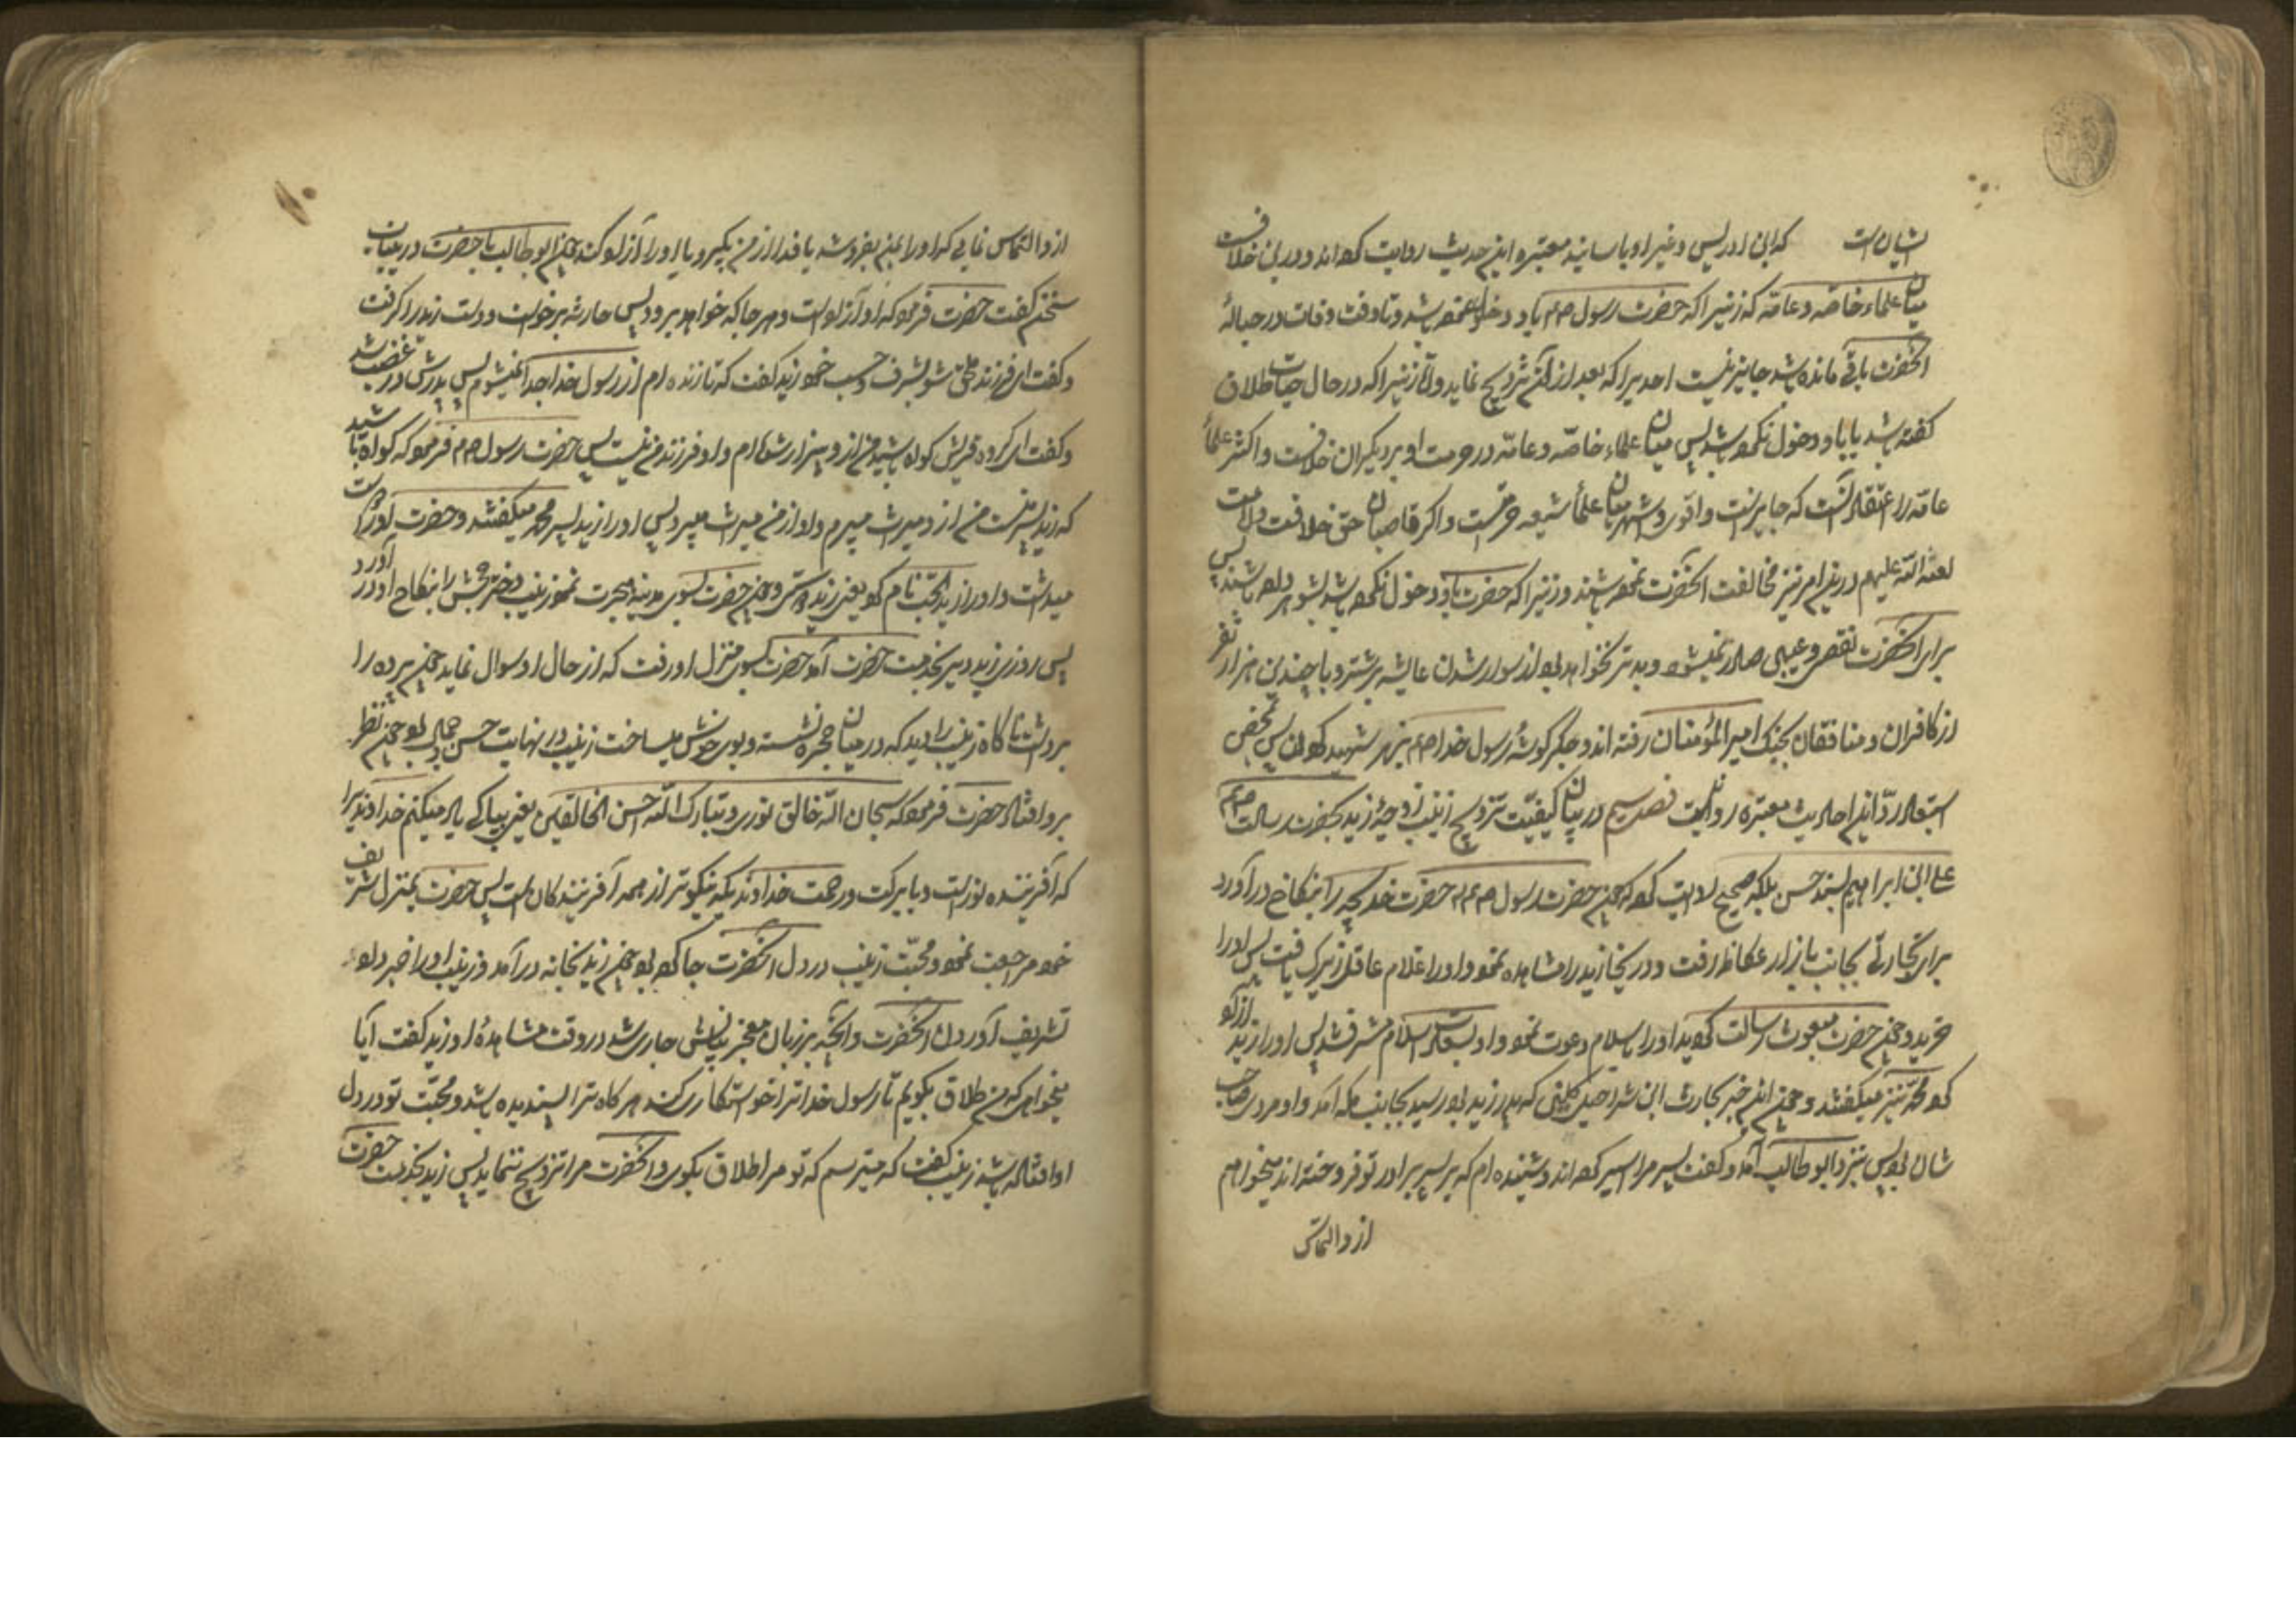 ایشان است که ابن ادریس و غیر او باسانید معتبره این حدیث روایت کرده‌اند و در این خلاف نیست
میان علماء خاصه و عامه که زنیرا که حضرت رسول صم باو دخول نموده باشد و تا وقت وفات در حبالهٔ
آنحضرت باقی مانده باشد جایز نیست احدیرا که بعد از آنحضرت تزویج نماید و اما زنیرا که در حال حیات طلاق
گفته باشد یا باو دخول نکرده باشد پس میان علماء خاصه و عامه در حرمت او بر دیگران خلافست و اکثر علماء
عامه را اعتقاد آنست که جایز است و اقوی و اشهر میان علماء شیعه حرمتست و اگر غاصبان حق خلافت و امامت
لعنة الله علیهم در این امر نیز مخالفت آنحضرت نموده باشند و زنیرا که حضرت باو دخول نکرده باشد بشوهر داده باشند پس
برای آنحضرت نقص و عیبی صادر نمیشود و بدتر نخواهد بود از سوار شدن عایشه بر شتر و با چندین هزار نفر
از کافران و منافقان بجنگ امیر المؤمنان رفته‌اند و جگر گوشهٔ رسول خدا صم بزهر شهید کرده‌اند پس بمحض
استبعاد رد این احادیث معتبره روا نیست فصل سیم در بیان کیفیت تزویج زینب زوجهٔ زید بحضرت رسالت صم
علی ابن ابراهیم بسند حسن بلکه صحیح روایت کرده که چون حضرت رسول صم حضرت خدیجه را بنکاح در آورد
برای تجارتی بجانب بازار عکاظ رفت و در آنجا زید را مشاهده نمود و او را غلام عاقل زیرک یافت پس او را
خرید و چون حضرت مبعوث برسالت گردید او را باسلام دعوت نمود و او بسعادت اسلام مشرف شد پس او را زید ازاد
کرده محمد نیز میگفتند و چون این خبر بحارث ابن شراحیل کلبی که پدر زید بود رسید بجانب مکه آمد و او مردی صاحب
شان بود پس بنزد ابو طالب آمد و گفت پسر مرا اسیر کرده‌اند و شنیده‌ام که بر پسر برادر تو فروخته‌اند میخواهم
از و التماس
از و التماس نمایی که او را بمن بفروشد یا فدا از من بگیرد یا او را آزاد کند چون ابو طالب با حضرت در میان
سخن گفت حضرت فرمود که او آزاد است و هر جا که خواهد برود پس حارثه برخواست و دست زید را گرفت
و گفت ای فرزند ملحق شو بشرف و حسب خود زید گفت که تا زنده‌ام از رسول خدا جدا نمیشوم پس پدرش در غضب شد
و گفت ای گروه قریش گواه باشید من از و بیزار شده‌ام و او فرزند من نیست پس حضرت رسول صم فرمود که گواه باشید
که زید پسر منست من از و میراث میبرم و او از من میراث میبرد پس او را زید پسر محمد میگفتند و حضرت او را دوست
میداشت و او را زید الحب نام کرد یعنی زید دوستی و چون حضرت بسوی مدینه هجرت نمود زینب دختر جحش را بنکاح او در آورد
پس روزی زید دیر بخدمت حضرت آمد حضرت بسوی منزل او رفت که از حال او سوال نماید چون پرده را
برداشت ناگاه زینب را دید که در میان حجره نشسته و بوی خوش میساخت زینب در نهایت حسن و جمال بود چون نظر
بر او افتاد حضرت فرمود که سبحان الله خالق نوری و تبارک الله احسن الخالقین یعنی بپاکی یاد میکنم خداوندیرا
که آفریننده نور است و با برکت و رحمت خداوندیکه نیکوتر از همه آفرینندگان است پس حضرت بمنزل شریف
خود مراجعت نمود و محبت زینب در دل آنحضرت جا کرده بود چون زید بخانه در آمد و زینب او را خبر داد
تشریف آوردن آنحضرت و آنچه بر زبان معجز بیانش جاری شد در وقت مشاهدهٔ او زید گفت آیا
میخواهی که من طلاق بگویم تا رسول خدا ترا خواستکاری کند هر گاه ترا پسندیده باشد و محبت تو در دل
او افتاده باشد زینب گفت که میترسم که تو مرا طلاق بگوی و آنحضرت مرا تزویج ننماید پس زید بخدمت حضرت